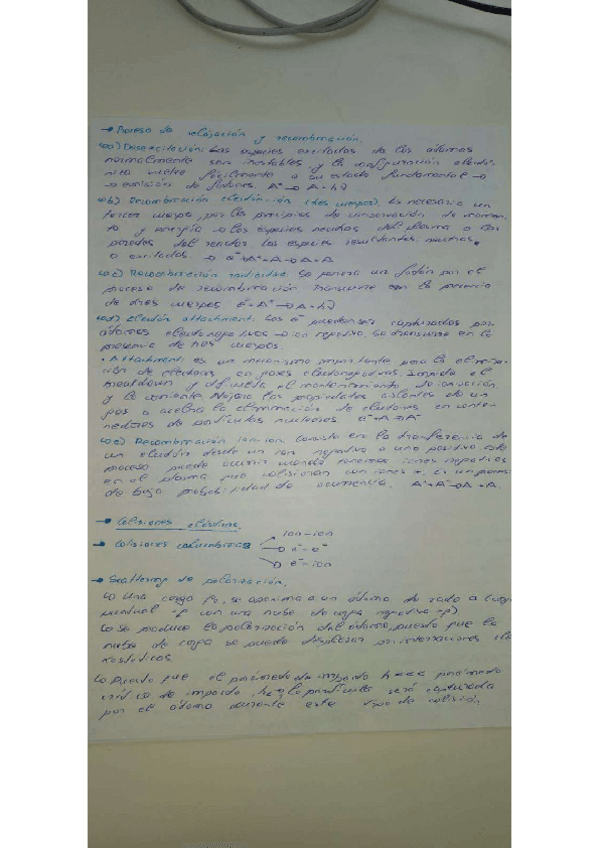 → Proceso de relajación y recombinación.
↳a) Desexcitación: Las especies excitadas de los átomos
normalmente son inestables y la configuración electró-
nica vuelve fácilmente a su estado fundamental →
→ emisión de fotones. A* → A + hν
↳b) Recombinación electrón-ion (tres cuerpos). Es necesario un
tercer cuerpo por los principios de conservación de momen-
to y energía → las especies neutras del plasma o las
paredes del reactor. Las especies resultantes, neutras
o excitadas. → e⁻ + A⁺ + A → A + A
↳c) Recombinación radiativa: Se genera un fotón por el
proceso de recombinación transcurre la presencia
de tres cuerpos e⁻ + A⁺ → A + hν
↳d) Electrón attachment: Los e⁻ pueden ser capturados por
átomos electronegativos → ion negativo. Se transcurre en la
presencia de tres cuerpos.
• Attachment: es un mecanismo importante para la elimina-
ción de electrones en gases electronegativos. Impide el
breakdown y dificulta el mantenimiento de ionización
y la corriente. Mejora las propiedades aislantes de un
gas o acelera la eliminación de electrones en conte-
nedores de partículas nucleares. e⁻ + A → A⁻
↳e) Recombinación ion-ion. Consiste en la transferencia de
un electrón desde un ion negativo a uno positivo. este
proceso puede ocurrir cuando tenemos iones negativos
en el plasma que colisionan con iones +. Es un proceso
de baja probabilidad de ocurrencia. A⁺ + A⁻ → A + A.
→ Colisiones elásticas.
→ colisiones coulombianas
ion-ion
e⁻-e⁻
e⁻-ion
→ Scattering de polarización.
↳ Una carga q₀, se aproxima a un átomo de radio a (carga
puntual +q con una nube de carga negativa -q)
↳ Se produce la polarización del átomo, puesto que la
nube de carga se puede desplazar por interacciones elec-
trostáticas.
↳ Puesto que el parámetro de impacto b <<< parámetro
crítico de impacto, la partícula será capturada
por el átomo durante este tipo de colisión.